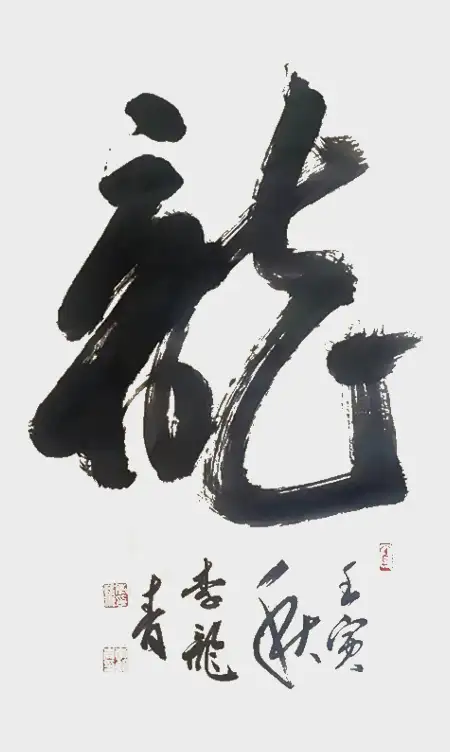 龍
壬寅
秋
李龍
青